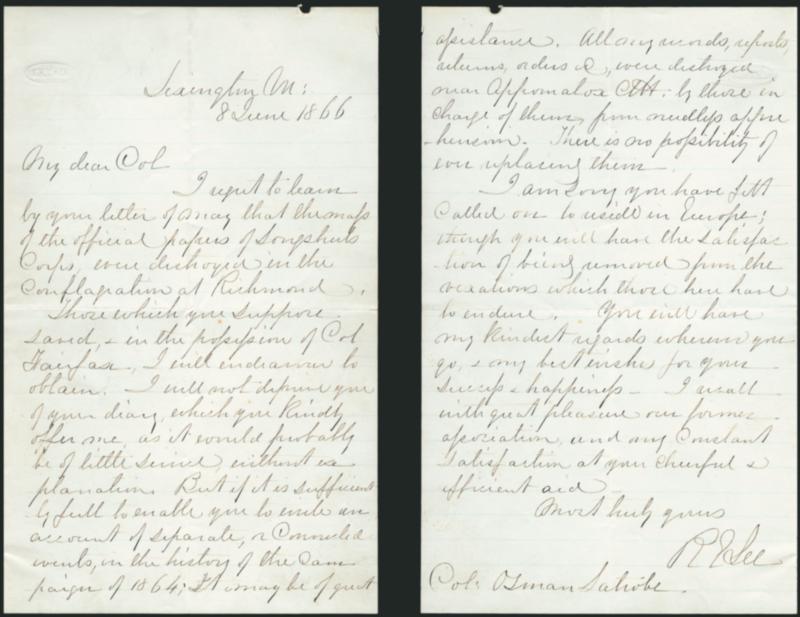 Lexington Va:
8 June 1866
My dear Col
I regret to learn
by your letter of May that the mass
of the official papers of Longstreets
Corps, were destroyed in the
conflagration at Richmond.
Those which you suppose
saved, & in the possession of Col
Fairfax, I will endeavour to
obtain. I will not deprive you
of your diary, which you kindly
offer me, as it would probably
be of little service, without ex
planation. But if it is sufficient
ly full to enable you to write an
account of separate, or connected
events, in the history of the cam
paign of 1864; it may be of great
assistance. All my records, reports,
returns, orders &c, were destroyed
near Appomatox CH: by those in
charge of them, from needless appre
-hension. There is no possibility of
ever replacing them
I am sorry you have felt
called on to reside in Europe;
though you will have the satisfac
-tion of being removed from the
vexations which those here have
to endure. You will have
my kindest regards wherever you
go, & my best wishes for your
success & happiness - I recall
with great pleasure our former
association, and my constant
satisfaction at your cheerful &
efficient aid
Most truly yours
R E Lee
Col: Osman Latrobe.